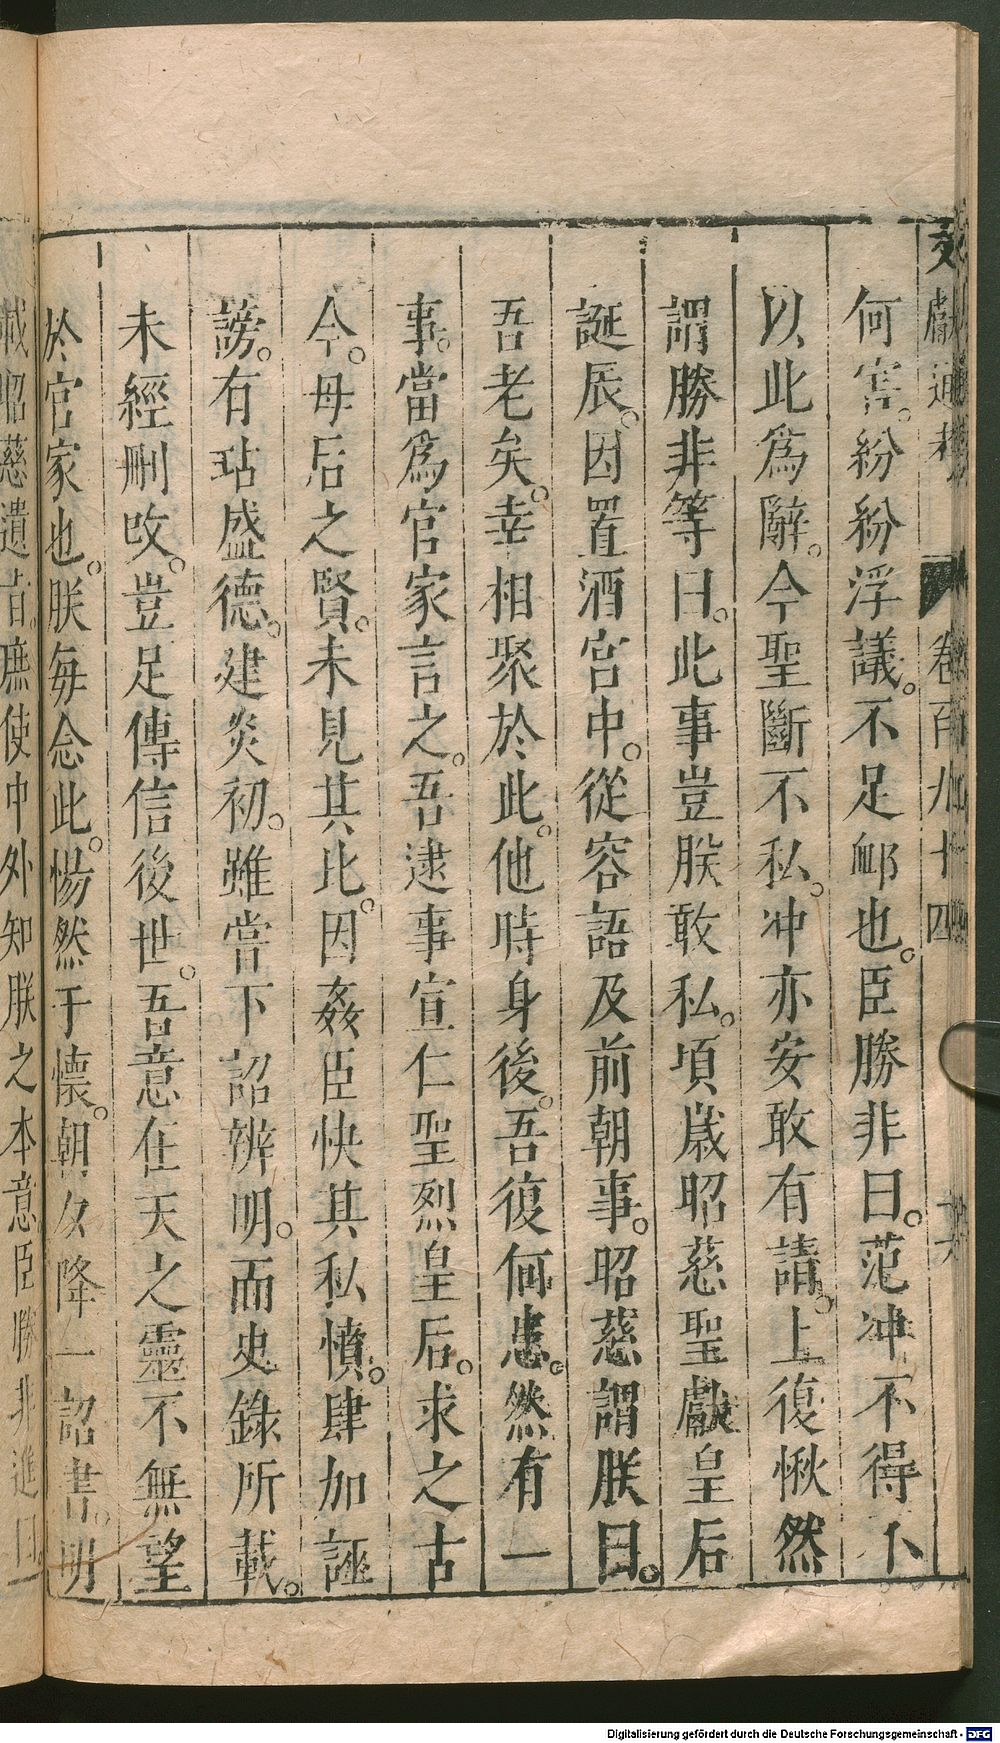 文獻通考 卷百九十四 十六
何害。紛紛浮議。不足䘏也。臣勝非曰。范冲不得不
以此爲辭。今聖斷不私。冲亦安敢有請。上復愀然
謂勝非等曰。此事豈朕敢私。頃歲昭慈聖獻皇后
誕辰。因置酒宮中。從容語及前朝事。昭慈謂朕曰。
吾老矣。幸相聚於此。他時身後。吾復何患。然有一
事。當爲官家言之。吾逮事宣仁聖烈皇后。求之古
今。母后之賢。未見其比。因姦臣快其私憤。肆加誣
謗。有玷盛德。建炎初。雖嘗下詔辨明。而史錄所載。
未經刪改。豈足傳信後世。吾意在天之靈不無望
於官家也。朕每念此。惕然于懷。朝夕降一詔書。明
載昭慈遺旨。庶使中外知朕之本意臣勝非進曰。
Digitalisierung gefördert durch die Deutsche Forschungsgemeinschaft - DFG